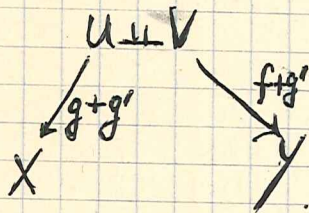 U ⊔ V
g+g'
f+g'
X
Y